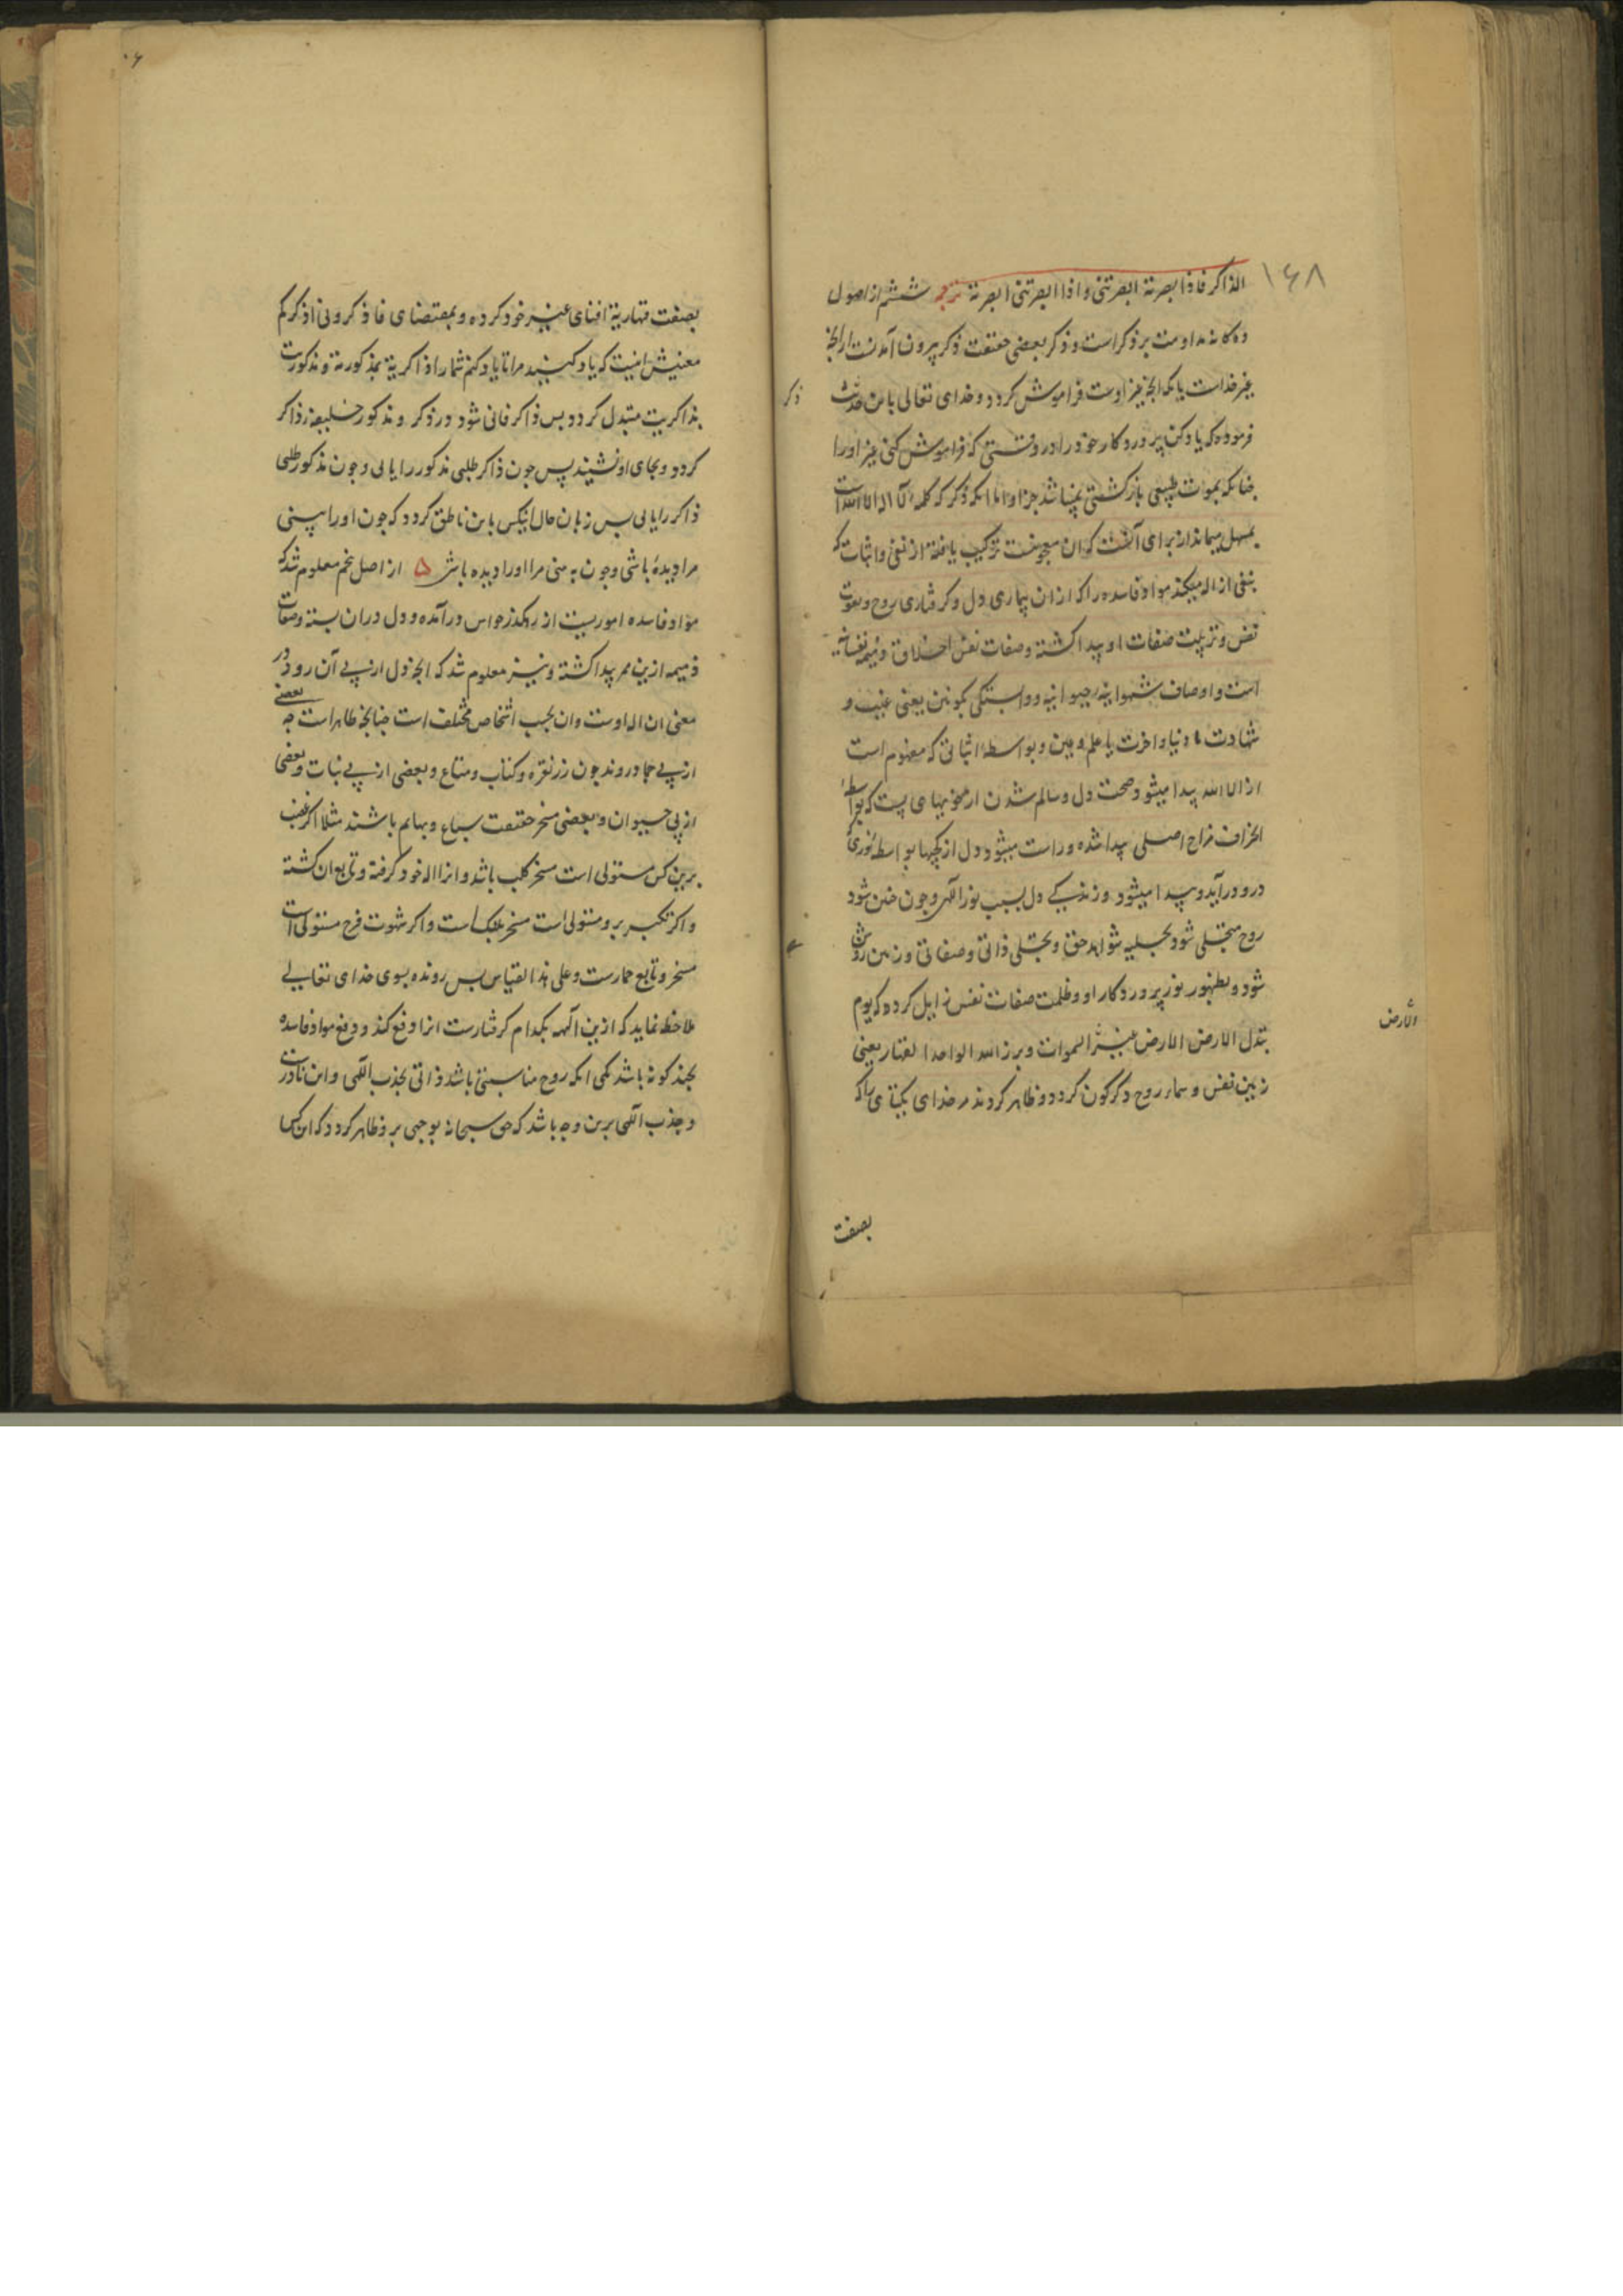 ۱۶۸
الذاکر فاذا ابصرته ابصرتنی و اذا ابصرتنی ابصرته ترجمه ششم از اصول
ده کانه مداومت بر ذکر است و ذکر بعضی حقیقت ذکر بیرون آمدنست از انچه
غیر خداست یا بکه انچه غیر اوست فراموش کردد و خدای تعالی باین حدیث
ذکر
فرموده که یاد کن پروردکار خود را در وقتی که فراموش کنی غیر او را
چنانکه بموت طبیعی بازکشتی نمیباشد جز او اما انکه ذکر که کلمه لا اله الا الله است
بمسهل میماند از برای آنست که ان معجونست ترکیب یافته از نفی و اثبات که
بنفی ازاله میکند مواد فاسده را که ازان بیماری دل و کرفتاری روح و تقویت
نفس و تربیت صفات او پیدا کشته و صفات نفس اخلاق ذمیمه نفسانیه
است و اوصاف شهوانیه حیوانیه و وابستکی بکونین یعنی غیب و
شهادت و دنیا و اخرت یا علم و عین و بواسطه اثباتی که مفهوم است
از الا الله پیدا میشود صحت دل و سالم شدن از خویهای پست که بواسطه
انحراف مزاج اصلی پیدا شده و راست میشود دل از کجیها بواسطه نوری که
درو درآید و پیدا میشود و زندکی دل بسبب نور الهی و چون چنین شود
روح متجلی شود بجلیه شواهد حق و بتجلی ذاتی و صفاتی و زمین روشن
شود و بظهور نور پروردکار او و ظلمت صفات نفس زایل کرده که یوم
الارض
تبدل الارض الارض غیر السموات و برز الله الواحد القهار یعنی
زمین نفس و سماء روح دکرکون کردد و ظاهر کردند مر خدای یکتای را که
بصفت
بصفت قهاریة افنای غیر خود کرده و بمقتضای فاذکرونی اذکرکم
معنیش اینست که یاد کنید مرا تا یاد کنم شما را ذاکریة بمذکوریة و مذکوریت
بذاکریت متبدل کردد پس ذاکر فانی شود در ذکر و مذکور خلیفه ذاکر
کردد و بجای او نشیند پس چون ذاکر طلبی مذکور را یابی و چون مذکور طلبی
ذاکر را یابی پس زبان حال انیکس باین ناطق کردد که چون او را بینی
مرا دیده باشی و چون به بینی مرا او را دیده باشی ۵ از اصل پنجم معلوم شد که
مواد فاسده اموریست از رهکذر حواس درآمده و دل دران بسته و صفات
ذمیمه ازین ممر پیدا کشته و نیز معلوم شد که انچه دل از پی آن رود در
معنی ان اله اوست و ان بحسب اشخاص مختلف است چنانچه ظاهر است چه بعضی
از پی جماد روند چون زر نقره و کتاب و متاع و بعضی از پی نبات و بعضی
از پی حیوان و بعضی مسخر حقیقت سباع و بهایم باشند مثلا اکر غضب
برین کس مستولی است مسخر کلب باشد و انرا اله خود کرفته و تابع ان کشته
و اکر تکبر برو مستولی است مسخر پلنک است و اکر شهوت فرج مستولی است
مسخر و تابع حمارست و علی هذا القیاس پس رونده بسوی خدای تعالی
ملاحظه نماید که ازین آلهه بکدام کرفتارست انرا دفع کند و دفع مواد فاسده
بچند کونه باشد یکی انکه روح مناسبتی باشد ذاتی بجذب الهی و این نادرست
و جذب الهی برین وجه باشد که حق سبحانه بوجهی برو ظاهر کردد که این کس را